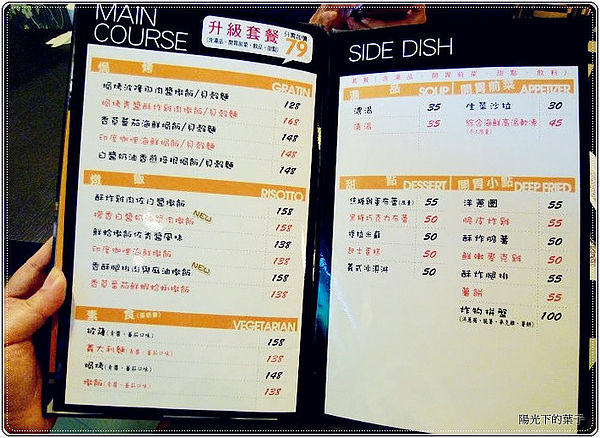 MAIN
COURSE
升級套餐 只需加價
(含湯品、開胃前菜、飲品、甜點) 79
焗 烤 GRATIN
焗烤波隆那肉醬燉飯/貝殼麵 128
焗烤青醬酥炸雞肉燉飯/貝殼麵 168
香草蕃茄海鮮焗飯/貝殼麵 148
印度咖哩海鮮焗飯/貝殼麵 148
白醬奶油香煎母根焗飯/貝殼麵 148
燉 飯 RISOTTO
酥炸雞肉佐白醬燉飯 158
NEW
158
鮮蛤燉飯佐青醬風味 158
印度咖哩海鮮燉飯 138
NEW
香酥腿排肉與麻油燉飯 158
香草蕃茄鮮蝦蛤蜊燉飯 138
素 食(蛋奶素) VEGETARIAN
披薩(青醬、蕃茄口味) 158
義大利麵(青醬、蕃茄口味) 138
焗烤(青醬、蕃茄口味) 148
燉飯(青醬、蕃茄口味) 138
SIDE DISH
套餐(含湯品、開胃前菜、甜點、飲料)
湯 品 SOUP
濃湯 35
清湯 35
開胃前菜 APPETIZER
生菜沙拉 30
綜合海鮮高湯軟凍 45
甜 點 DESSERT
焦糖雞蛋布蕾(限量) 55
黑糖巧克力布蕾 50
提拉米蘇 50
起士蛋糕 50
義式冰淇淋 50
開胃小點 DEEP FRIED
洋蔥圈 55
脆皮炸雞 55
酥炸脆薯 50
鮮嫩麥克雞 50
酥炸腿排 55
薯餅 55
炸物拼盤 100
(洋蔥圈、脆薯、麥克雞、薯餅)
陽光下的葉子